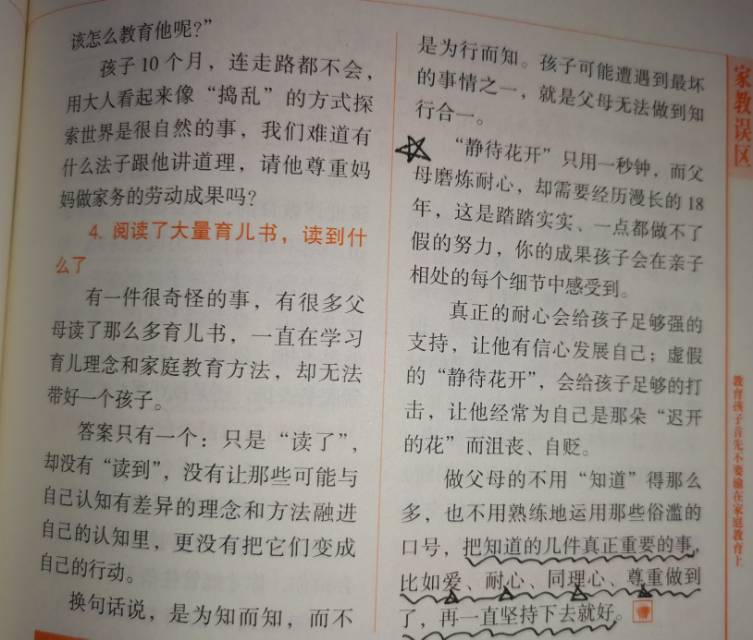 该怎么教育他呢？”
孩子10个月，连走路都不会，
用大人看起来像“捣乱”的方式探
索世界是很自然的事，我们难道有
什么法子跟他讲道理，请他尊重妈
妈做家务的劳动成果吗？
4. 阅读了大量育儿书，读到什
么了
有一件很奇怪的事，有很多父
母读了那么多育儿书，一直在学习
育儿理念和家庭教育方法，却无法
带好一个孩子。
答案只有一个：只是“读了”，
却没有“读到”，没有让那些可能与
自己认知有差异的理念和方法融进
自己的认知里，更没有把它们变成
自己的行动。
换句话说，是为知而知，而不
是为行而知。孩子可能遭遇到最坏
的事情之一，就是父母无法做到知
行合一。
“静待花开”只用一秒钟，而父
母磨炼耐心，却需要经历漫长的18
年，这是踏踏实实、一点都做不了
假的努力，你的成果孩子会在亲子
相处的每个细节中感受到。
真正的耐心会给孩子足够强的
支持，让他有信心发展自己；虚假
的“静待花开”，会给孩子足够的打
击，让他经常为自己是那朵“迟开
的花”而沮丧、自贬。
做父母的不用“知道”得那么
多，也不用熟练地运用那些俗滥的
口号，把知道的几件真正重要的事，
比如爱、耐心、同理心、尊重做到
了，再一直坚持下去就好。
家教误区
教育孩子首先不要输在家庭教育上